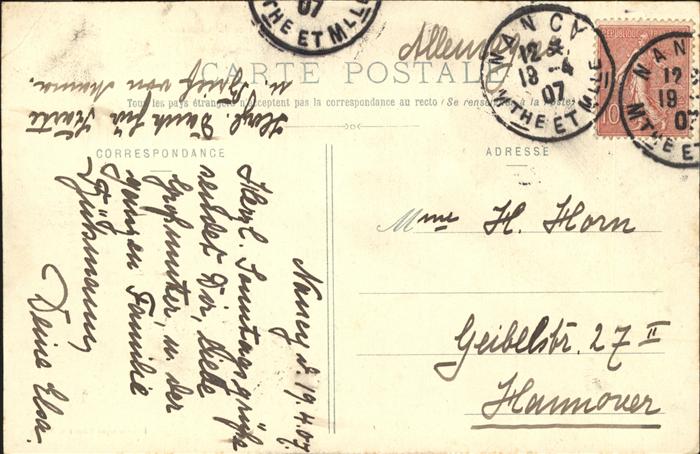 07
THE ET MLLE
Allemagne
CARTE POSTALE
Tous les pays étrangers n'acceptent pas la correspondance au recto (Se renseigner à la Poste)
NANCY
12
18 -4
07
M THE ET MLLE
REPUBLIQUE FRANÇAISE
10
NAN
12
19
07
M THE ET
CORRESPONDANCE
ADRESSE
Nancy d. 19.4.07.
Herzl. Sonntagsgrüße
sendet Dir, liebe
Großmutter, u. der
ganzen Familie
Deine Else.
Herzl. Dank für Karte
u. Brief von Mama.
Mme H. Horn
Geibelstr. 27 II
Hannover